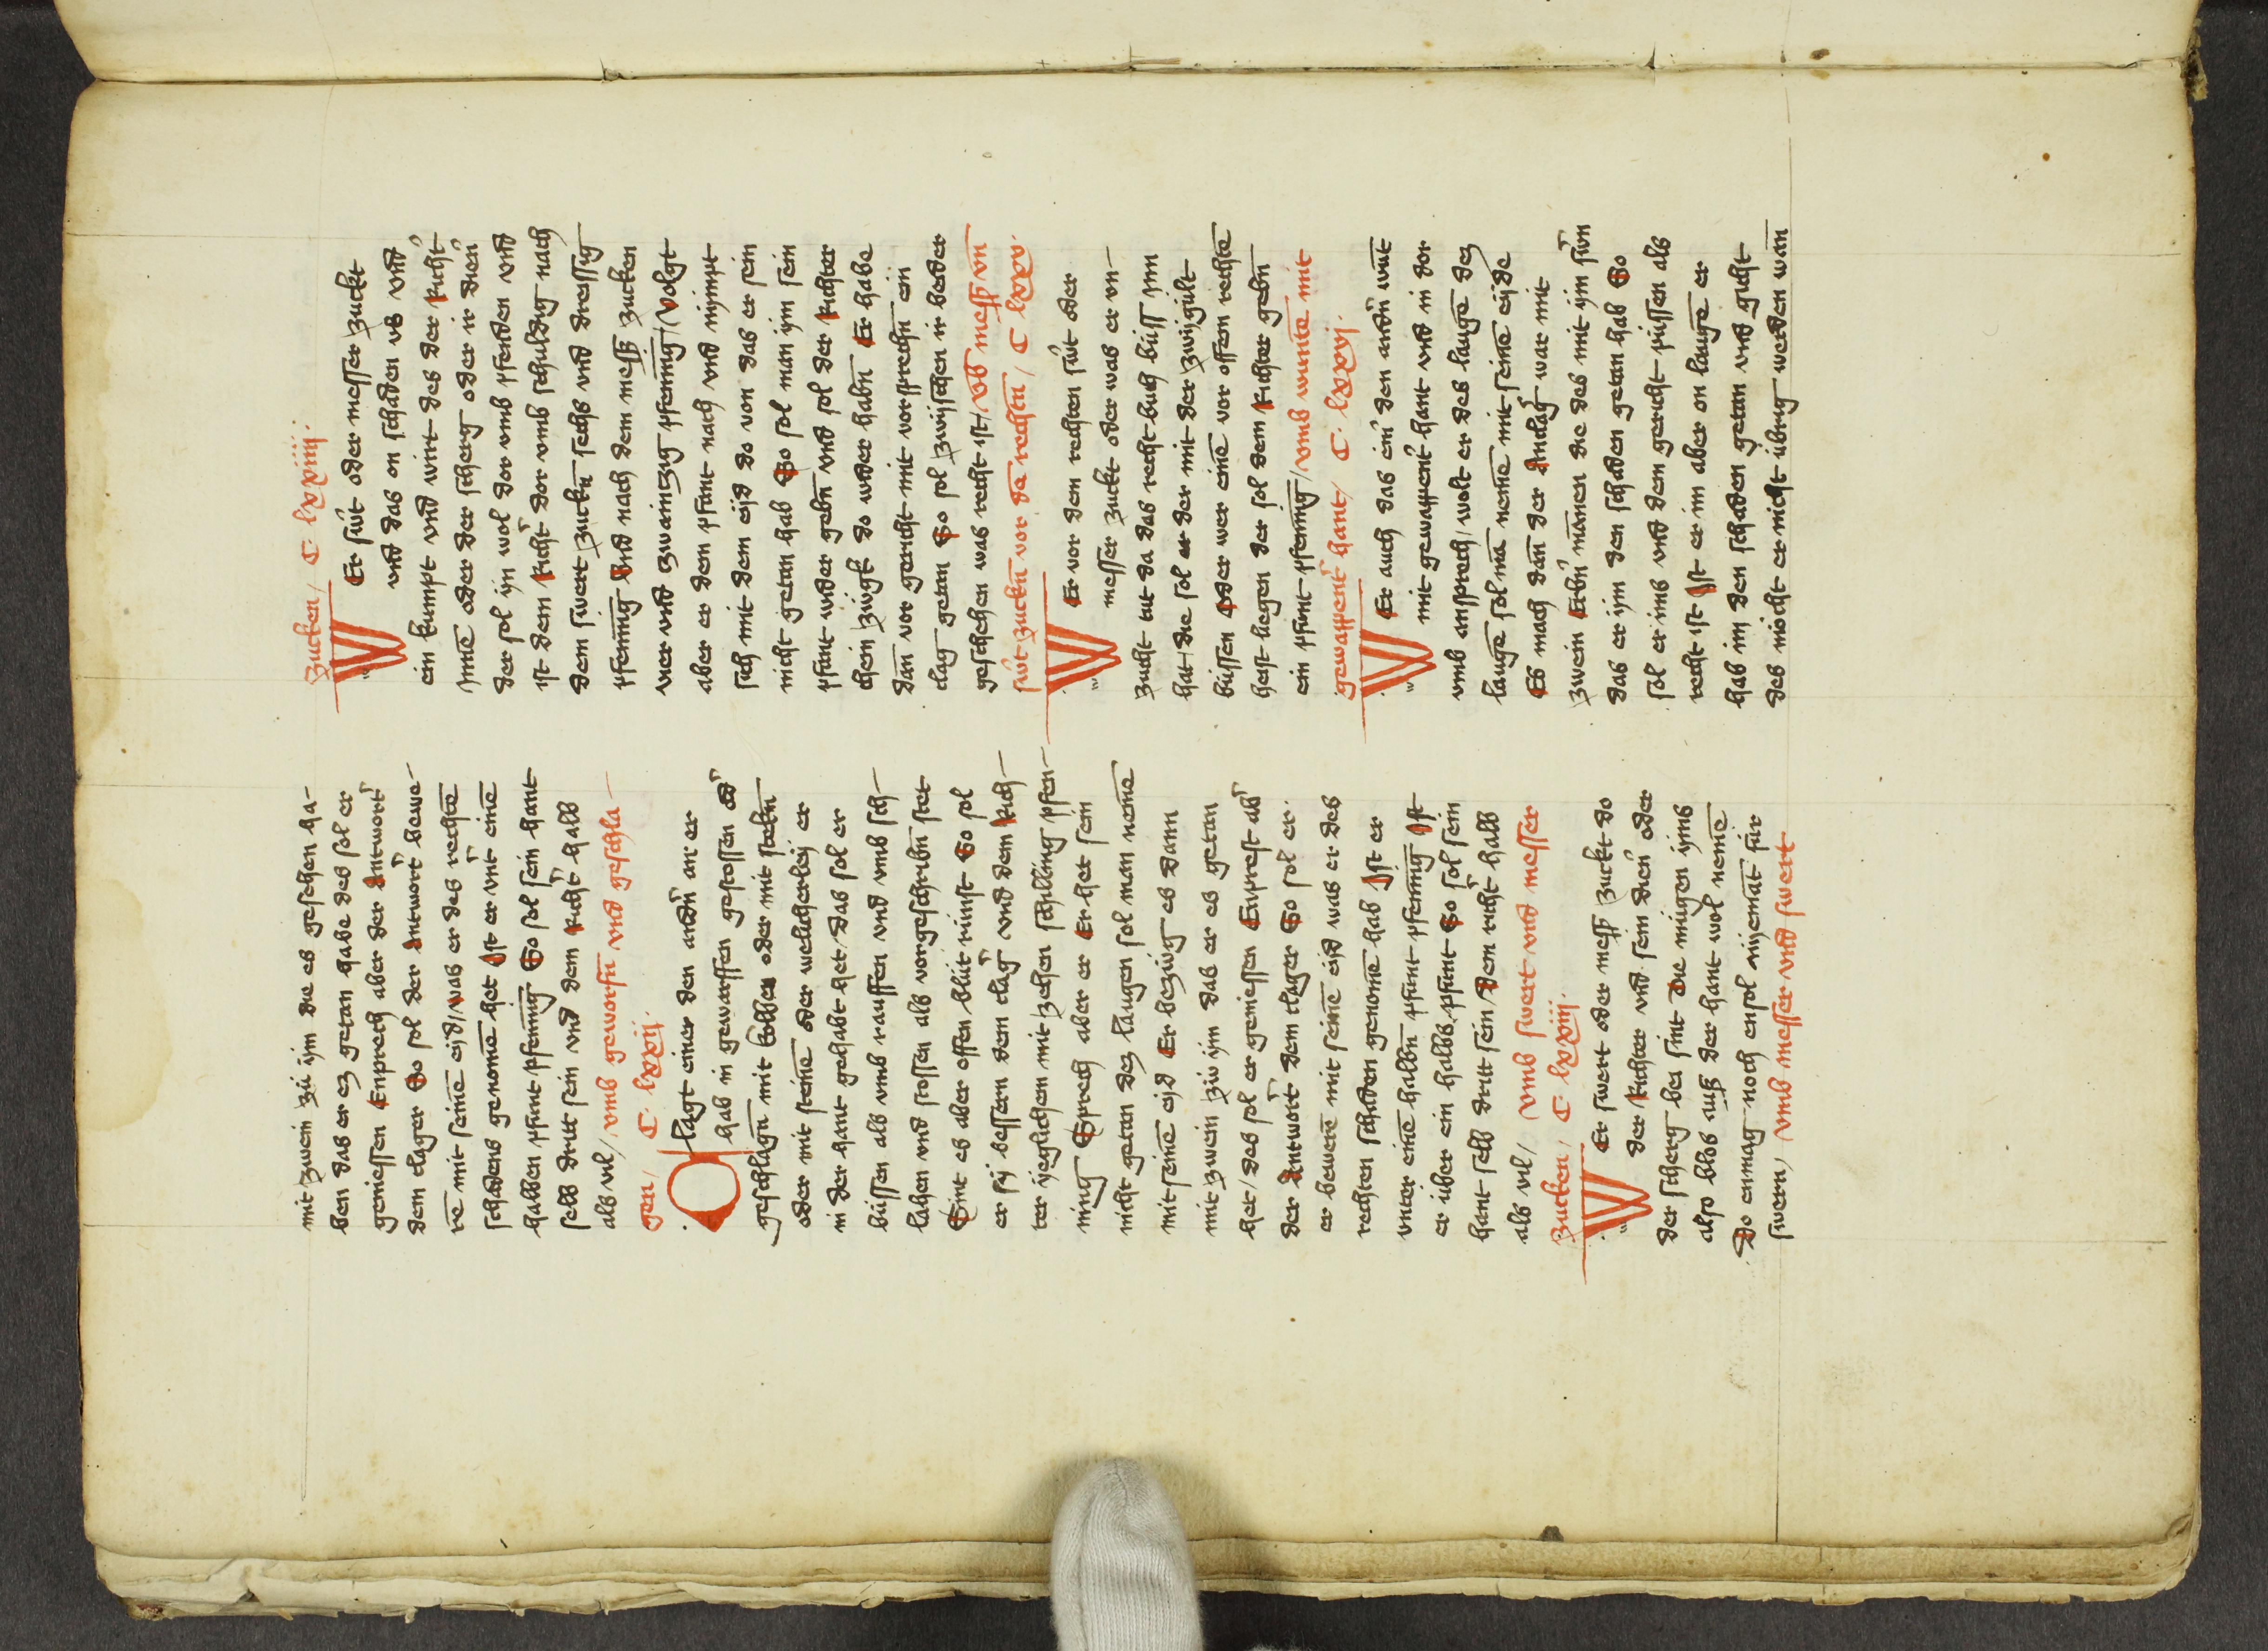 mit zwein zü ÿm die es gesehen ha-
ben das er ez getan habe des sol er
geniessen Enprech aber der Antwort͛
dem clager So sol der Antwort͛ bewe-
rē mit seinē eyd / was er des rechtē
schadens genomē het Ist er vnt͛ einē
halben pfunt pfenīng So sol sein hant
selb dritt sein vnd dem Richt͛ halb
als vil / vmb geworfn̄ vnd geschla-
gen / C. lxxij.
Clagt einer den andn͛ an er
hab in gewarffen gestossen od͛
geschlagn̄ mit kolben oder mit steckn̄
oder mit steinē oder welicherleÿ er
in der hant gehabt het / das sol er
büssen als vmb rauffen vnd vmb sch-
lahen vnd stossen als vorgeschribn̄ stet
Sint es aber offen / blüt rünst So sol
er sÿ bessern dem clag͛ vnd dem Rich-
ter ÿeglichem mit zehen schilling pfen-
ning Sprech aber er Er het sein
nicht getan dez laugen sol man nemē
mit seinē eyd Er bezwüg es dann
mit zwein zw ÿm das er es getan
het / des sol er geniessen Enprest ab͛
der Antwort͛ dem clager So sol er
er bewerē mit seinē eyd was er des
rechten schaden genomē hab Ist er
vnter einē halbn̄ pfunt pfenning Ist
er über ein halbs pfunt So sol sein
hant selb dritt sein / dem richt͛ halb
als vil / vmb swert vnd messer
zucken / C. lxxiij.
WEr swert oder mess͛ zuckt do
der Richter vnd sein dien͛ oder
der scherg bei sint die mügen ÿms
also blos auß der hant wol nemē
Do enmag noch ensol nÿemāt für
swern / vmb messer vnd swert
zucken / C. lxxiiij.
WEr swt͛ oder messer zuckt
vnd das on schaden vb vnd
ein kumpt vnd wirt des der Richt͛
ynnē oder der scherg oder ir dien͛
der sol ÿn wol dor vmb pfenden vnd
ist dem Richt͛ dor vmb schuldig nach
dem swert zuckn̄ sechs vnd dreissig
pfenning vnd nach dem mess͛ zucken
vier vnd zwainczig pfenning / Volgt
aber er dem pfant nach vnd nÿmpt
sich mit dem eyd do von das er sein
nicht getan hab So sol man ÿm sein
pfant wider gebn̄ vnd sol der Richter
chein züg͛ do wider habn̄ Er habe
dan vor gericht mit vorsprechn̄ ein
clag getan So sol zwischen ir beder
geschehen was recht ist / vb mess͛ vn̄
swt͛ zuckn̄ vor dē rechtn̄ / C lxxv.
WEr vor dem rechten swt͛ oder
messer zuckt oder was er vn-
zucht tut da das recht buch büss ynn
hat / die sol er der mit der zwigült
büssen Oder wer einē vor offen rechtē
heist liegen der sol dem Richter gebn̄
ein pfunt pfenning / vmb wuntē mit
gewappent͛ hant / C. lxxvj.
WEr auch das ein͛ den andn͛ wūt
mit gewappent͛ hant vnd in dor
vmb ansprech / wolt er des laugē dez
laugē sol mā nemē mit seinē eyde
Es mach dan̄ der Anclag͛ war mit
zwein Erbn͛ mānen die des mit ÿm swn͛
das er ÿm den schaden getan hab So
sol er ims vnd dem gericht püssen als
recht ist Ist er im aber on laugē er
hab im den schaden getan vnd gicht
des möcht er nicht übrig werden wan̄